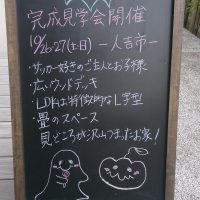 完成見学会開催
10/26・27(土日)
ー人吉市ー
・サッカー好きのご主人とお子様
・広いウッドデッキ
・LDKは特徴的なL字型
・畳のスペース
見どころが沢山つまったお家!